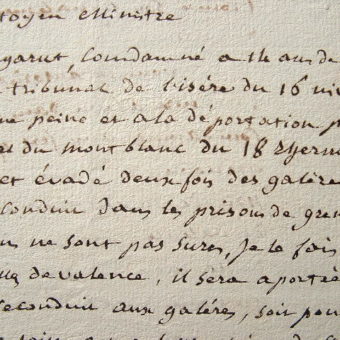 toyen Ministre
garut, Condamné a 14 ans de
tribunal de l'isére du 16 niv
ne peine et a la déportation p
du montblanc du 18
et évadé deux fois des galére
conduit dans les prisons de gren
ne sont pas sures, Je le fais
de valence, il sera
reconduit aux galéres, soit pou